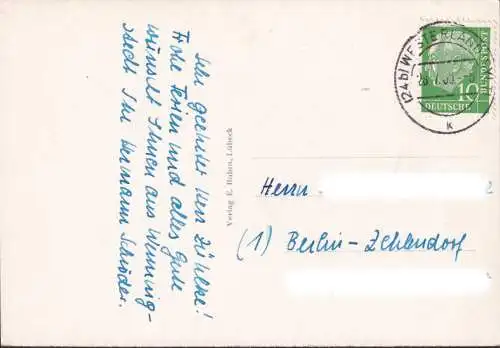 Sehr geehrter Herr Zühlke!
Frohe Ferien und alles Gute
wünscht Ihnen aus Wenning-
stedt Ihr Hermann Schröder.
Verlag E. Hahn, Lübeck
(24b) WESTERLAND
K
10
DEUTSCHE
BUNDESPOST
Herrn
(1) Berlin-Zehlendorf